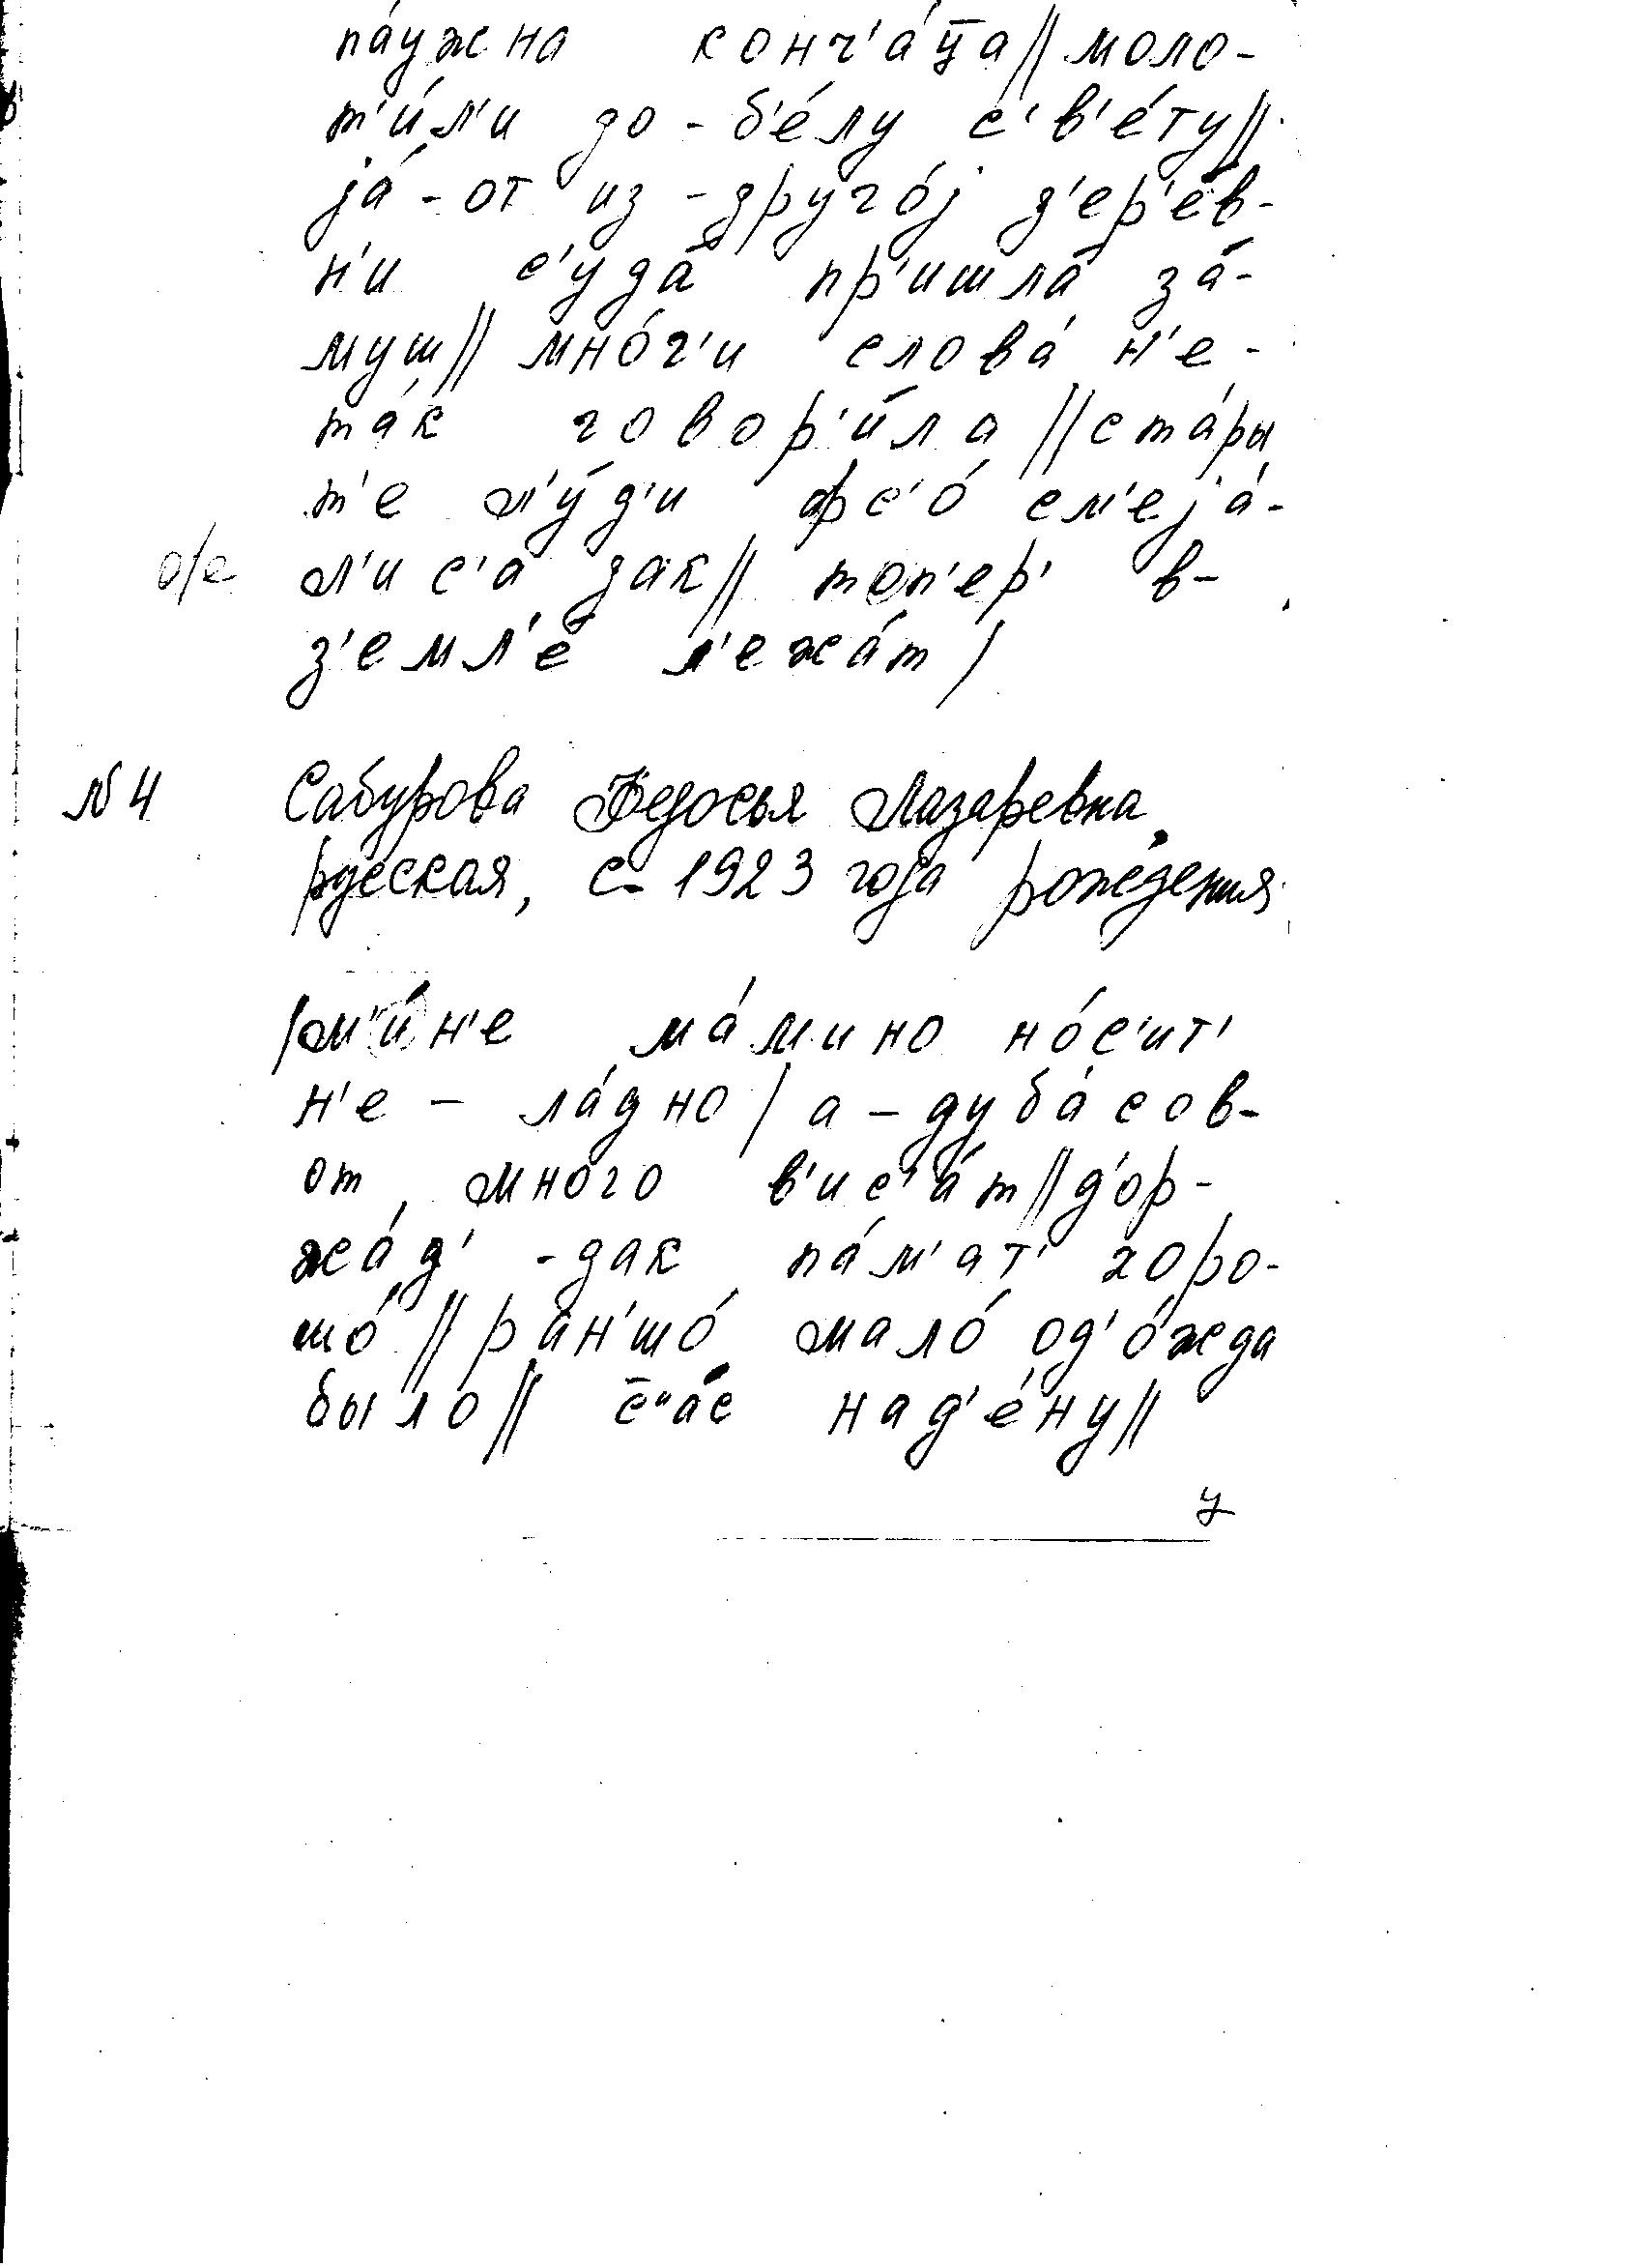 па́ужна конч'а́ц̅а // моло-
т'и́л'и до - б'е́лу с'в'е́ту //
jа́ - от из - друго́j д'ер'е́в-
н'и с'уда́ пр'ишла́ за́-
муш // мно́г'и слова́ н'е -
та́к говор'и́ла // ста́ры
т'е л'у́д'и фс'о́ см'еjа́-
о/е л'ис'а зак // топ'ер' в-
з'емл'е́ л'ежа́т /
№4 Сабурова Федосья Лазаревна,
русская, с 1923 года рождения.
/ м'и́н'е ма́мино но́с'ит'
н'е - ла́дно / а - дуба́сов-
от мно́го в'ис'а́т // д'ор-
жа́д' - дак па́м'ат' хоро-
шо́ // ра́н'шо мало́ од'о́жда
было // с̅'а́с над'е́ну //
у